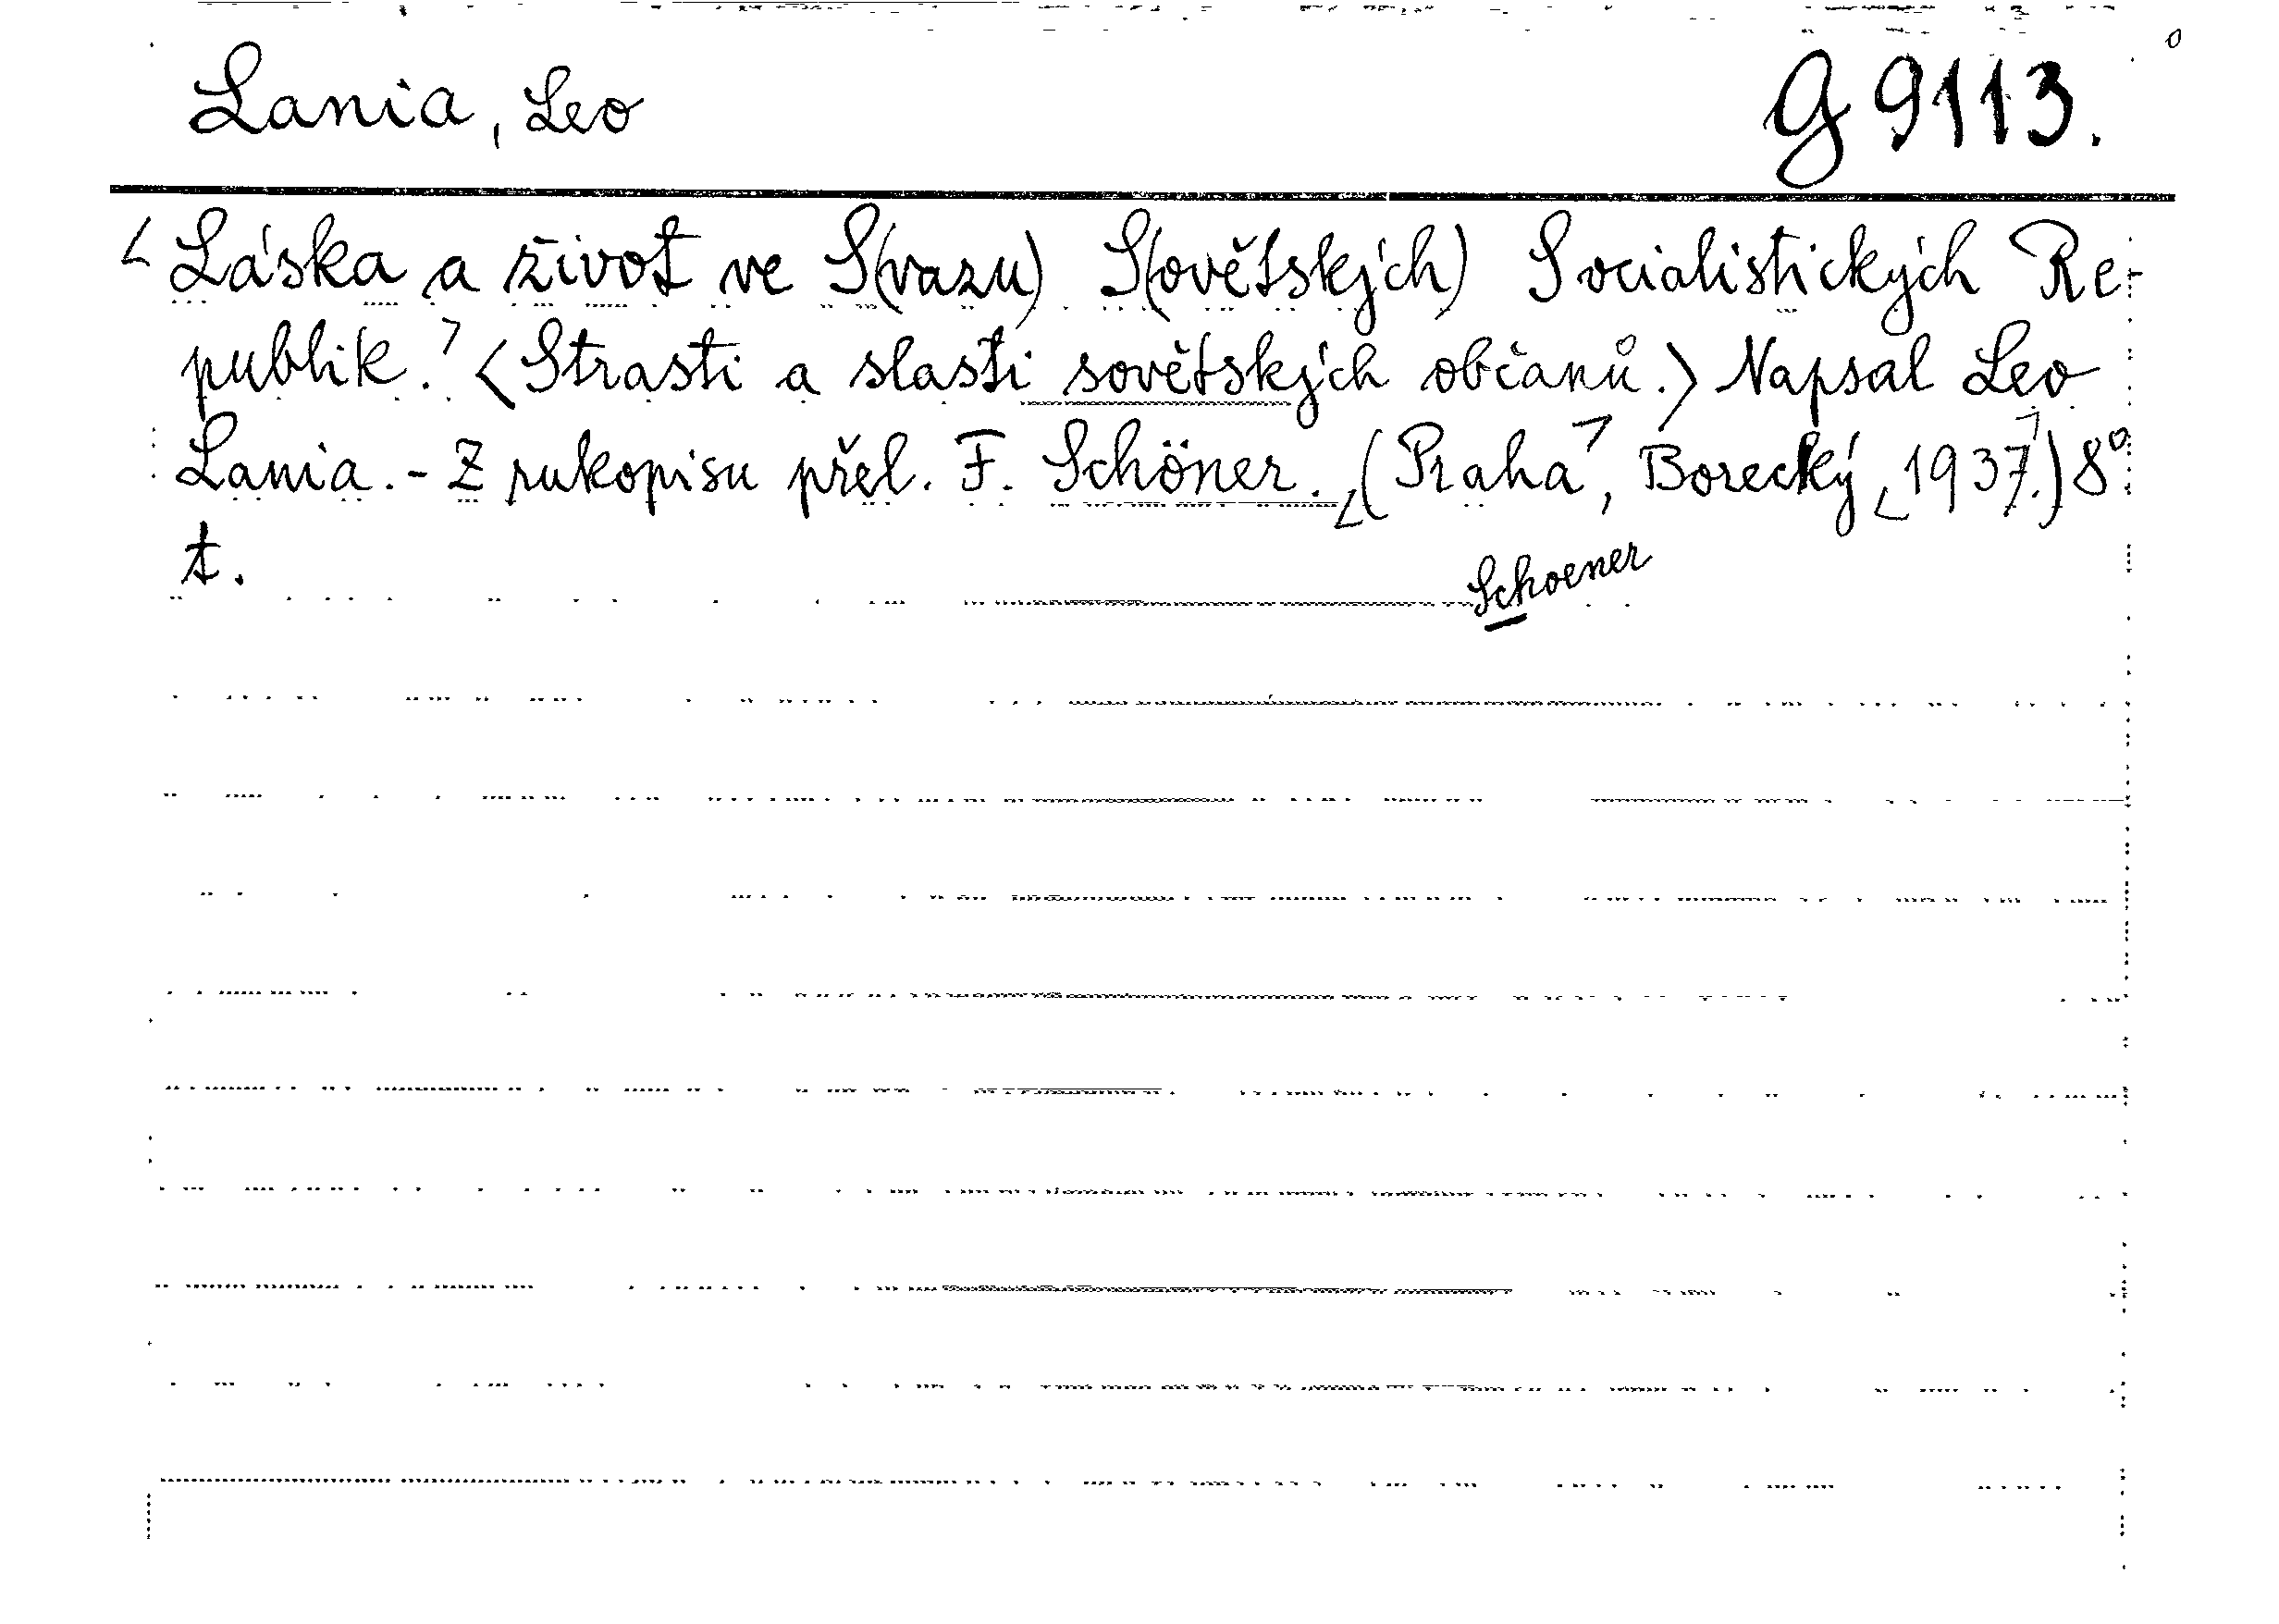 Lania, Leo G 9113.
<Láska a život ve S(vazu) S(ovětských) Socialistických Re-
publik.> <Strasti a slasti sovětských občanů.> Napsal Leo
Lania. - Z rukopisu přel. F. Schöner. <(Praha>, Borecký <1937>.) 8°
t.
Schoener